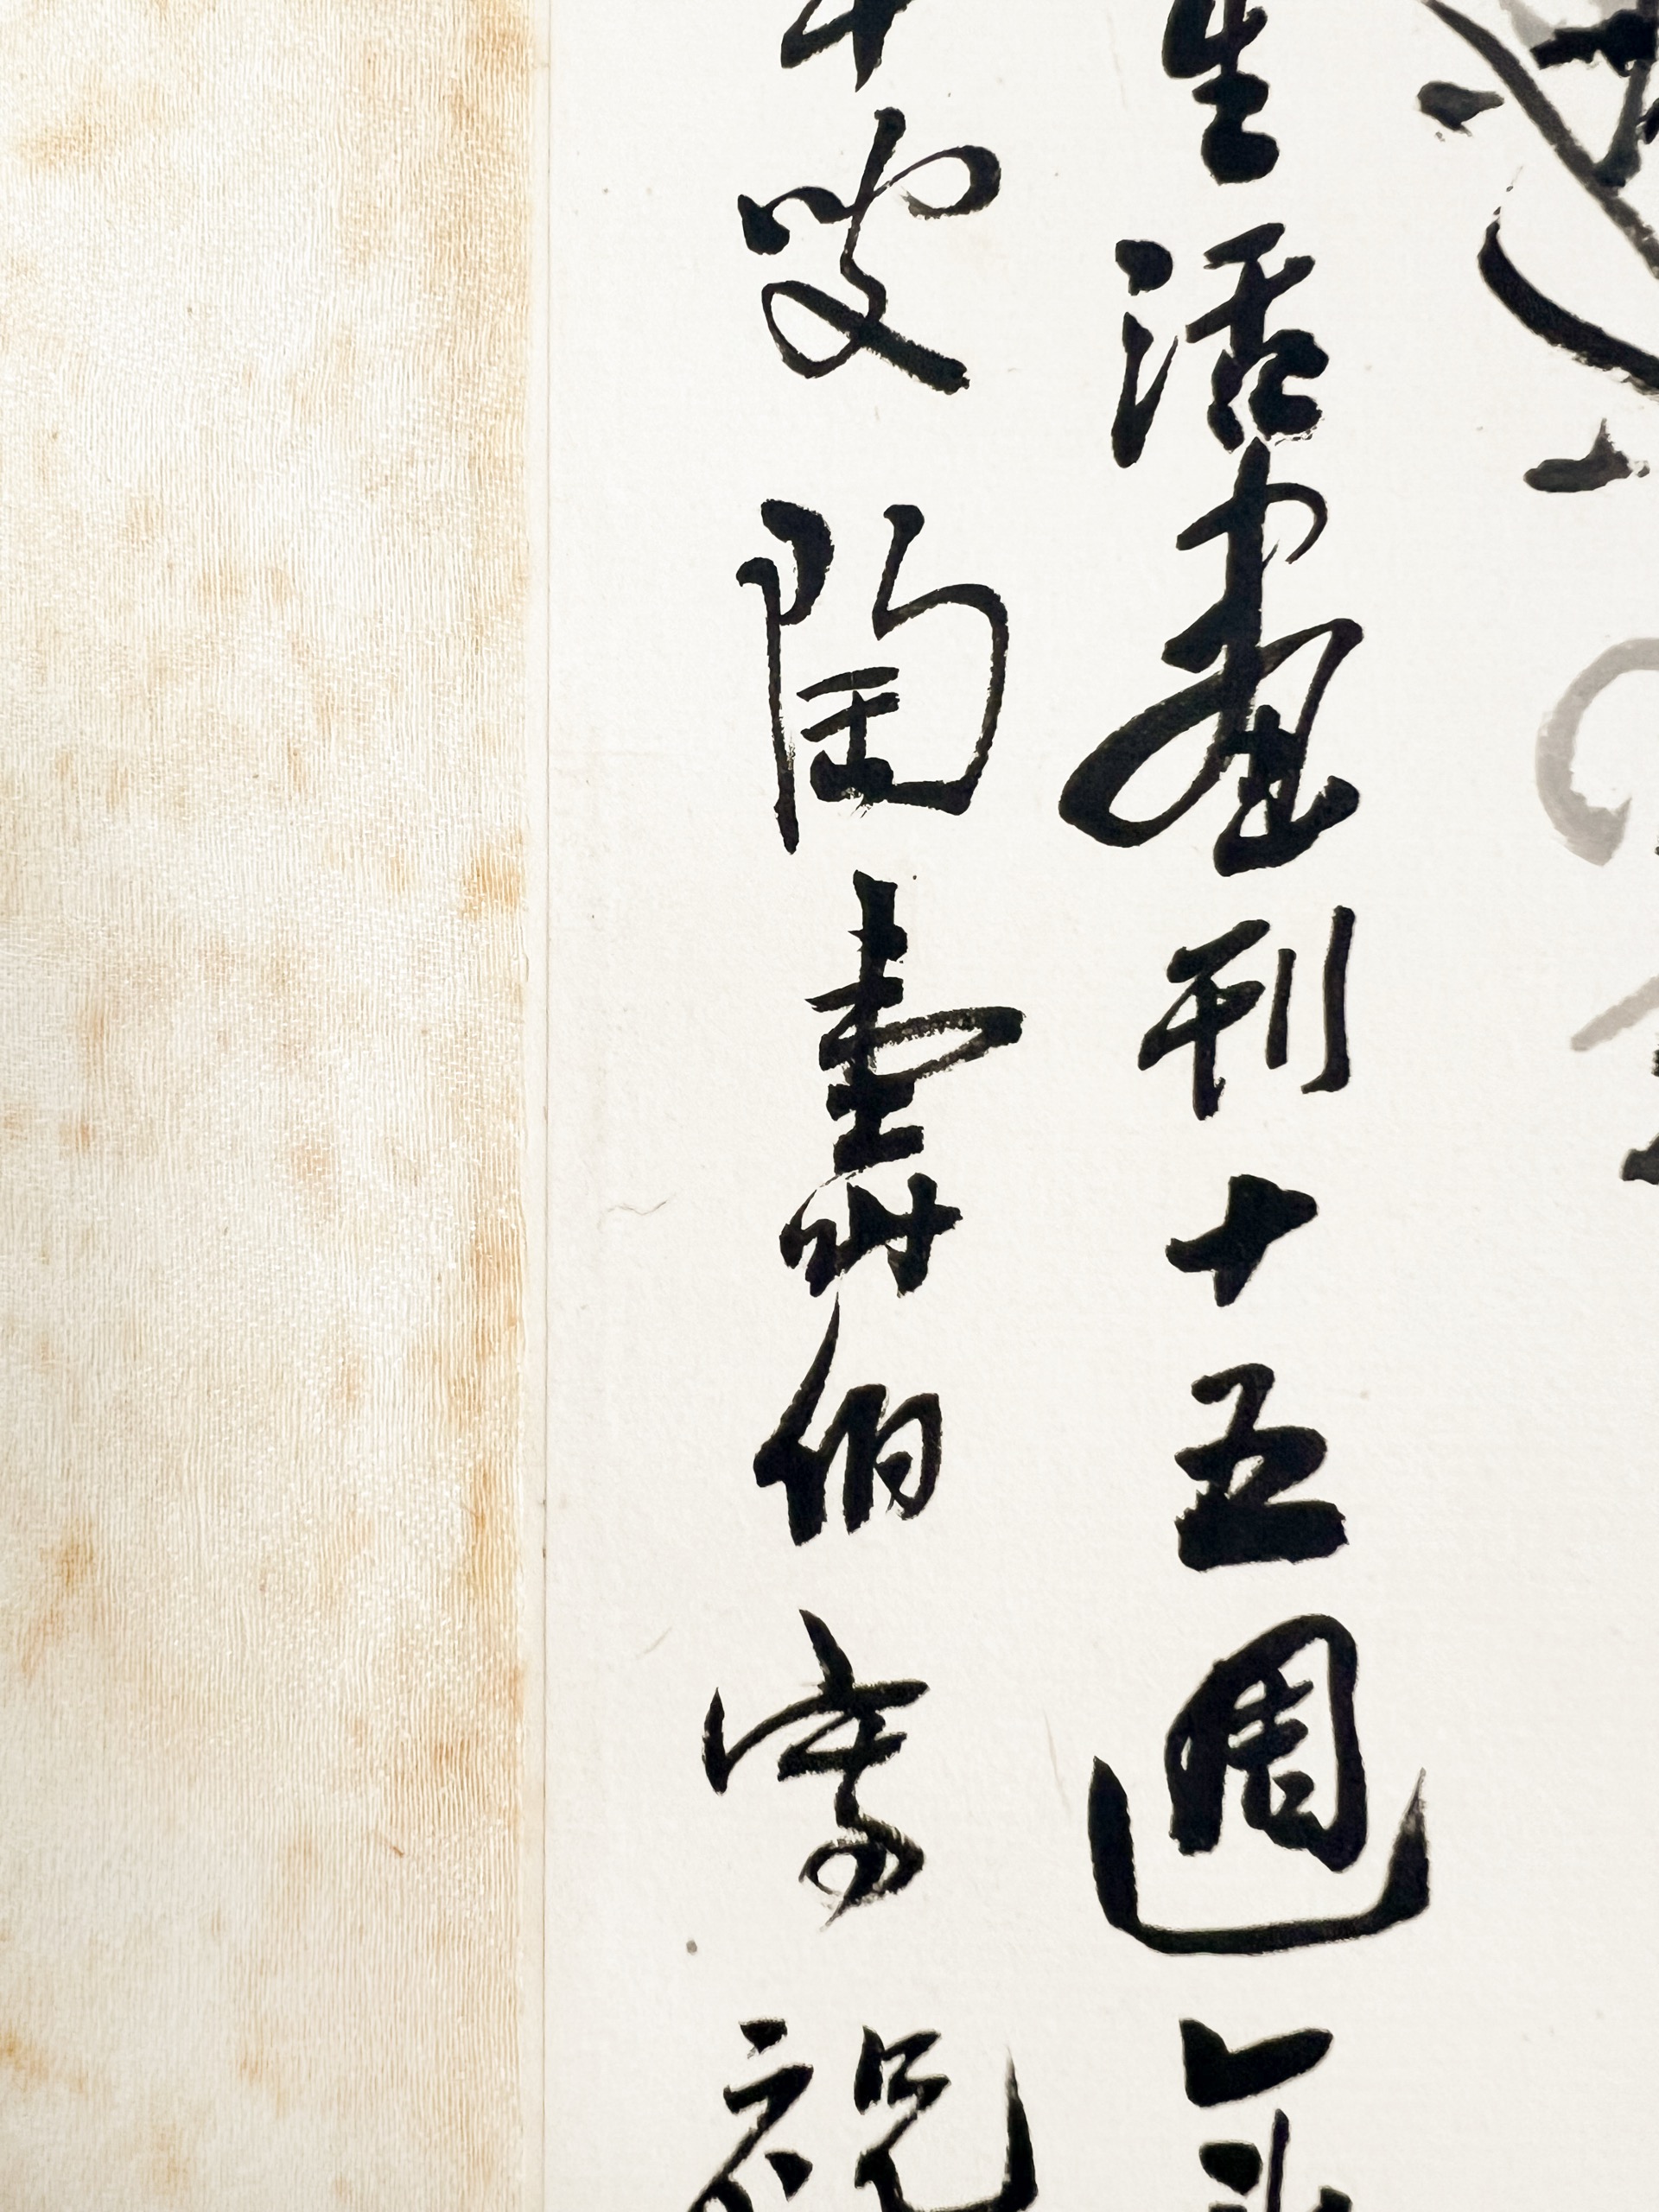 生活畫刊十五週年
叟陶壽伯寫祝